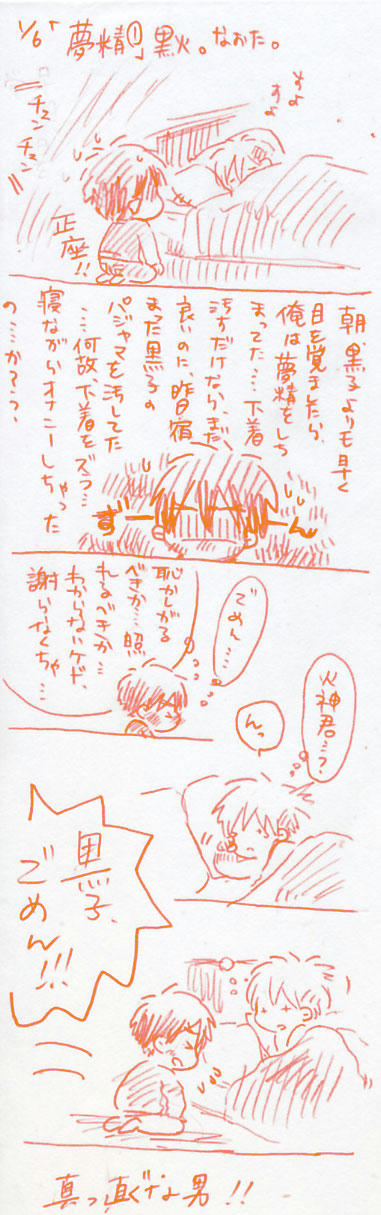 1/6「夢精①」黒火。なおた。
すよ
すよ
チュン
チュン
正座!!
朝、黒子よりも早く
目を覚ましたら、
俺は夢精をし
まってた…下着
汚すだけなら、まだ、
良いのに、昨日宿
まった黒子の
パジャマを汚してた
…何故、下着をズラ…
寝ながらオナニーしちゃった
の…
ずーーん
ごめん…
恥かしがる
べきか…照
れるべきか…
わからないケド、
謝らなくちゃ…
火神君…?
んっ
黒子、
ごめん!!!
真っ直ぐな男!!